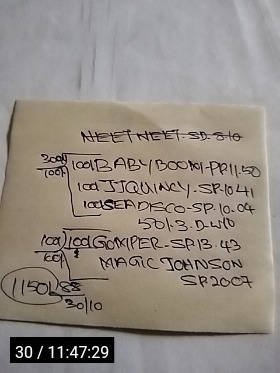 NEET NEET-SP-8-10
300/ 100/ BABY BOOM-PP 11.50
100/ 100/ JJ QUINCY-SP-10.41
100/ SEADISCO-SP-10.04
50/-3.D.W10
100/ 100/ GOMPER-SP 13.43
100/ MAGIC JOHNSON
SP 2007
1150
30/10
30 / 11:47:29